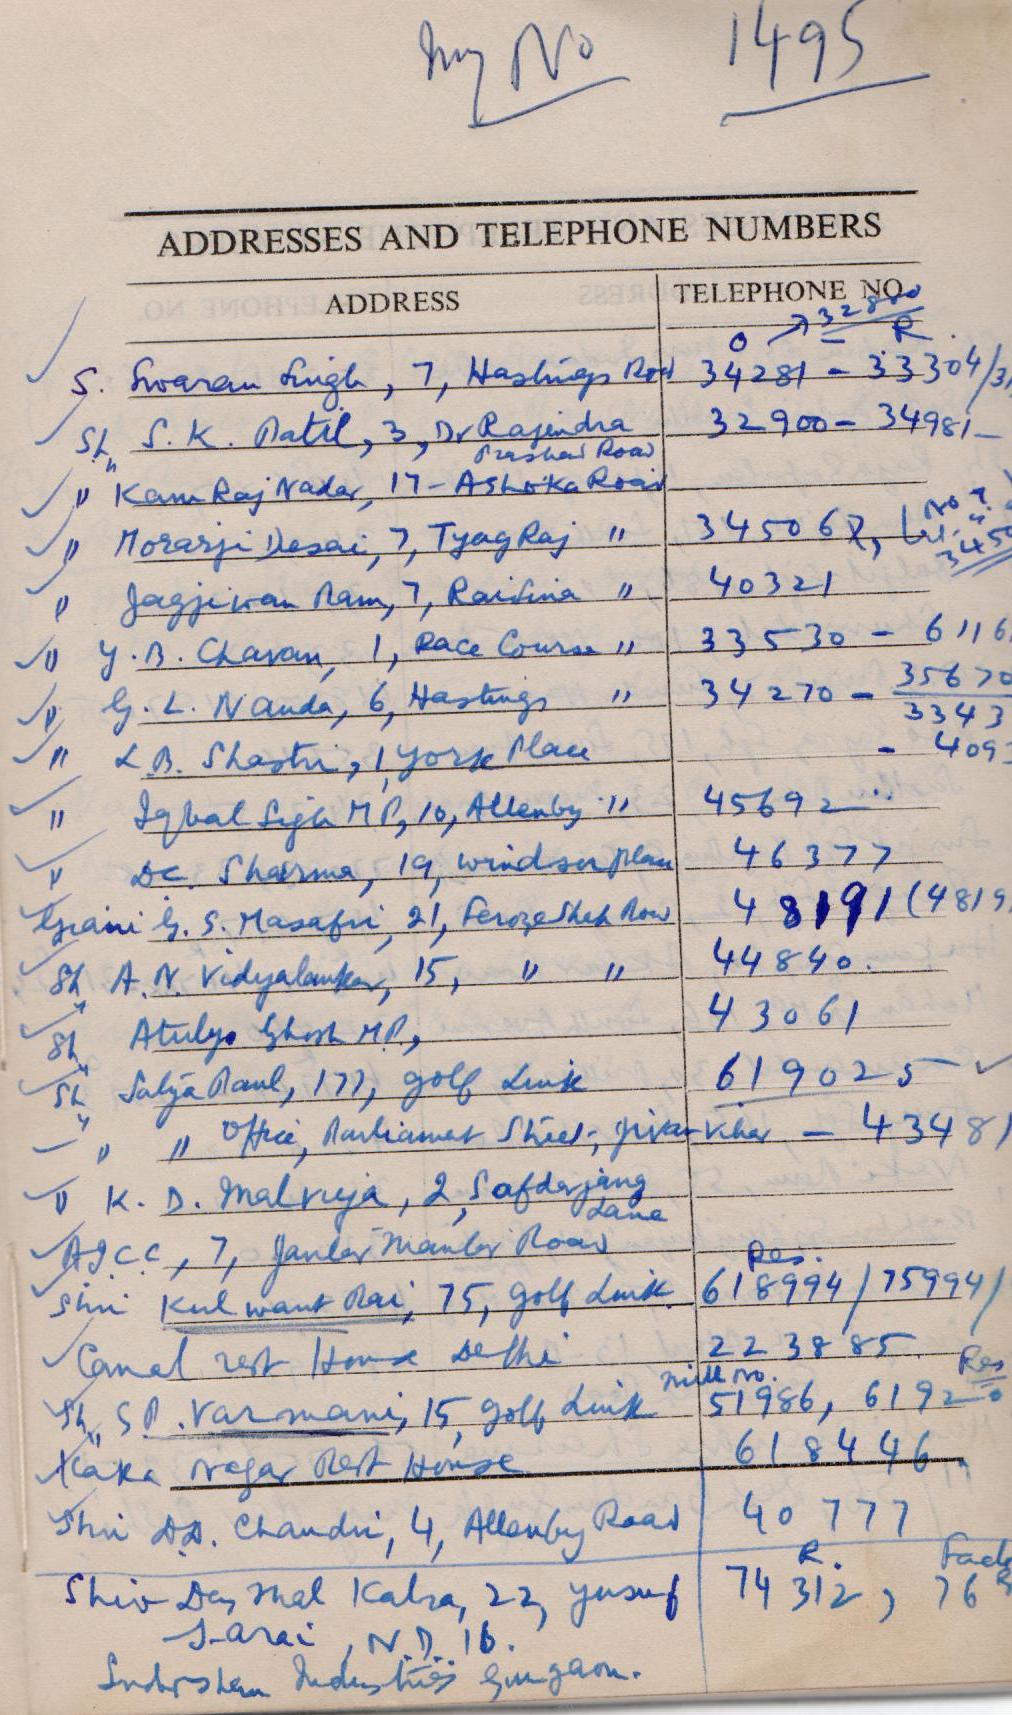 My No 1495
ADDRESSES AND TELEPHONE NUMBERS
ADDRESS TELEPHONE NO.
O → 32800 R.
S. Swaran Singh, 7, Hastings Road 34281 - 33304/3
Sh. S. K. Patil, 3, Dr Rajendra 32900 - 34981 -
Prashad Road
" Kam Raj Nadar, 17 - Ashoka Road
" Morarji Desai, 7, Tyag Raj " 345067,
" Jagjiwan Ram, 7, Raisina " 40321
" Y. B. Chavan, 1, Race Course " 33530 - 6116
" G. L. Nanda, 6, Hastings " 34270 - 35670
3343
" L.B. Shastri, 1, York Place - 409
" Iqbal Singh MP, 10, Allenby " 45692
" D.C. Sharma, 19, Windsor Place 46377
Giani G. S. Masafri, 21, Feroze Shah Road 48191 (4819
Sh A. N. Vidyalankar, 15, " " 44840.
Sh Atulya Ghosh MP, 43061
Sh Satya Paul, 177, Golf Link 619025
" " Office, Parliament Street, Jivan Vihar - 43481
" K. D. Malviya, 2, Safdarjang
Lane
AICC, 7, Jantar Mantar Road
Res.
Shri Kulwant Rai, 75, Golf Link. 618994/75994/
Canal rest House Delhi 223885.
Mill No. Res
Sh. S P. Varmani, 15, Golf Link 51986, 6192
Kaka Nagar Rest House 618446
Shri D.D. Chandri, 4, Allenby Road 40777
R.
Shiv Das Mal Kalra, 22, Yusuf 74312, 76
Sarai, N.D. 16.
Industries Gurgaon.